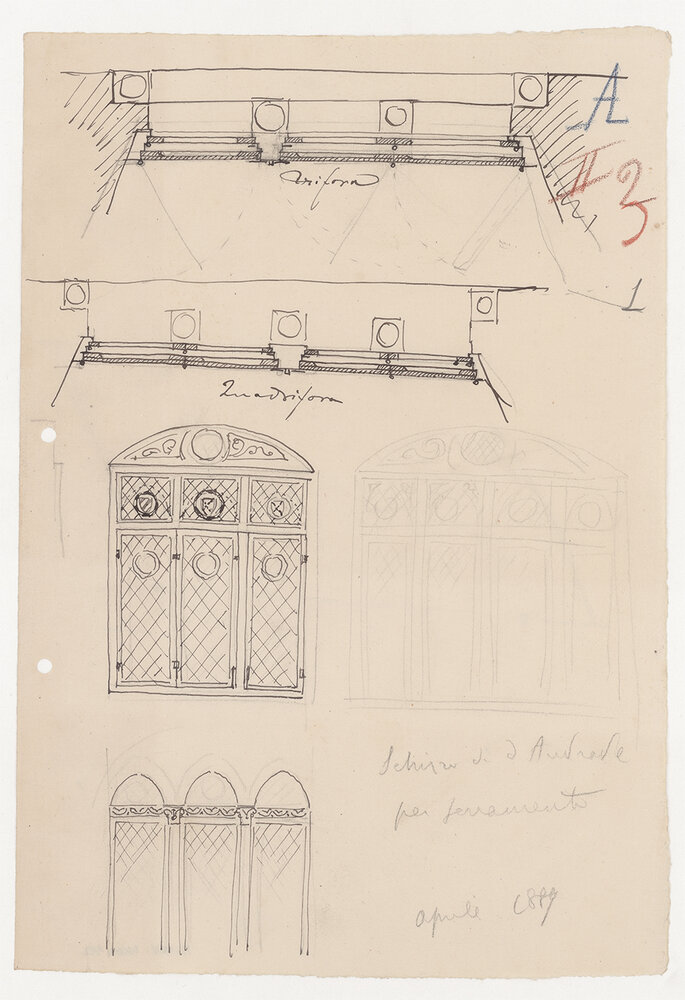 A
II 3
Trifora
1
Quadrifora
Schizzo di d'Andrade
per serramento
aprile 1889